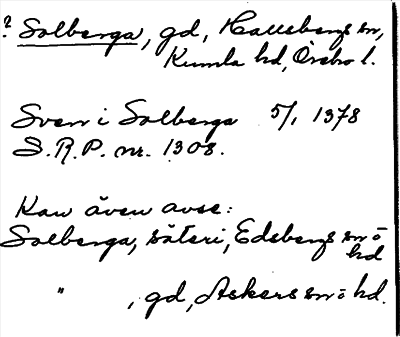 ? Solberga, gd, Hallsbergs sn,
Kumla hd, Örebro l.
Sven i Solberga 5/1 1378
S.R.P. nr. 1308.
Kan även avse:
Solberga, säteri, Edsbergs sn o
hd
" , gd, Askers sn o hd.